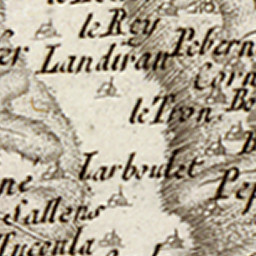 le Rey
Landiran
Pebern
Corn
le Tron
Bo
Larboulet
Pep
Sallens